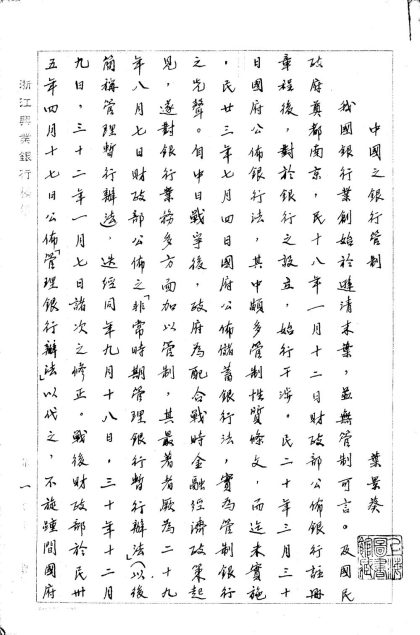 中國之銀行管制
葉景葵
我國銀行業創始於遜清末葉，並無管制可言。及國民
政府奠都南京，民十八年一月十二日財政部公佈銀行註冊
章程後，對於銀行之設立，始行干涉。民二十年三月三十
日國府公佈銀行法，其中頗多管制性質條文，而迄未實施
，民廿三年七月四日國府公佈儲蓄銀行法，實為管制銀行
之先聲。自中日戰爭後，政府為配合戰時金融經濟政策起
見，遂對銀行業務多方面加以管制，其最著者厥為二十九
年八月七日財政部公佈之「非常時期管理銀行暫行辦法」（以後
簡稱管理暫行辦法），迭經同年九月十八日，三十年十二月
九日，三十二年一月七日諸次之修正。戰後財政部於民卅
五年四月十七日公佈「管理銀行辦法」以代之，不旋踵間國府
浙江興業銀行
一